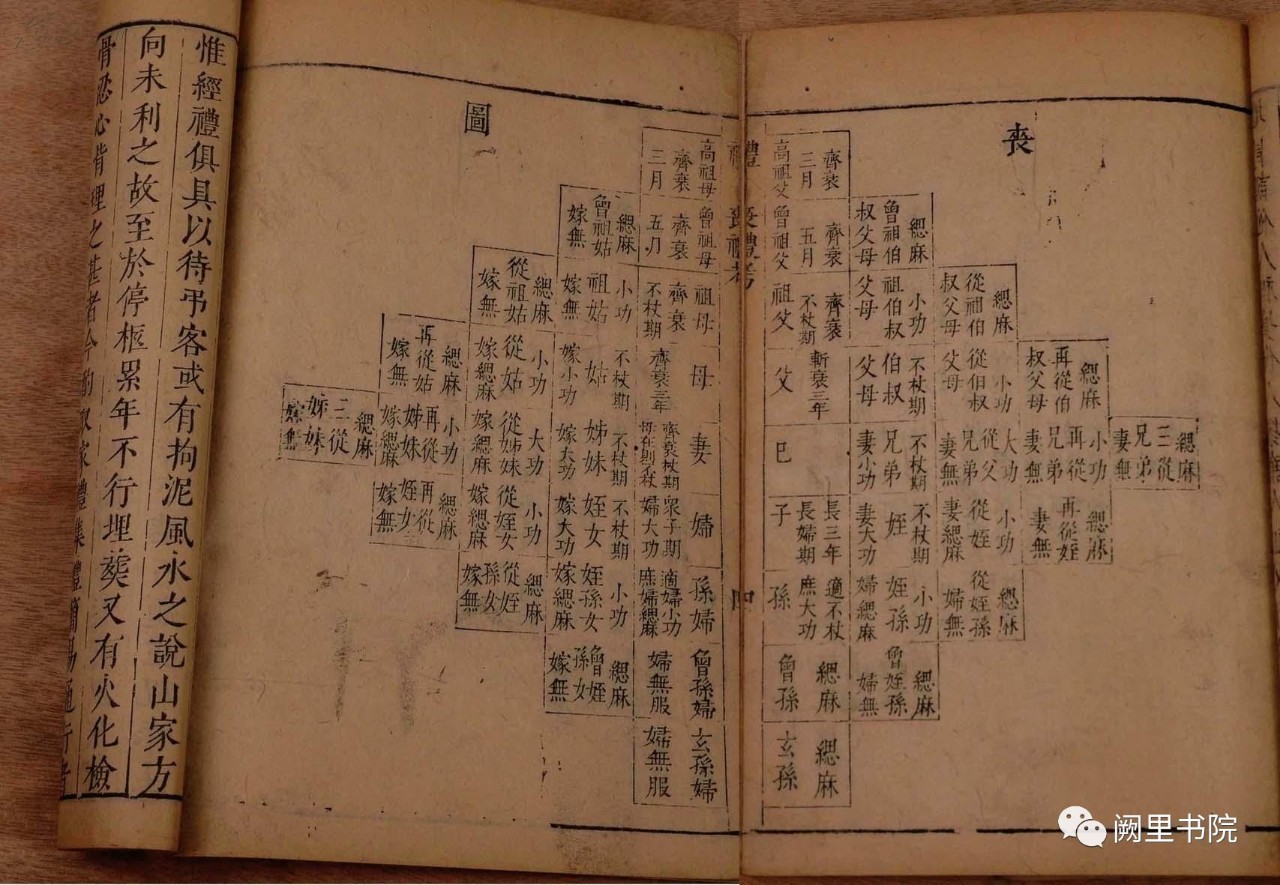 喪
齊衰三月
高祖父
緦麻
曾祖伯
叔父母
齊衰五月
曾祖父
緦麻
從祖伯
叔父母
小功
祖伯叔
父母
齊衰不杖期
祖父
緦麻
再從伯
叔父母
小功
從伯叔
父母
不杖期
伯叔
父母
斬衰三年
父
緦麻
三從
兄弟
妻無
小功
再從
兄弟
妻無
大功
從父
兄弟
妻無
不杖期
兄弟
妻小功
巳
緦麻
再從姪
妻無
小功
從姪
妻緦麻
不杖期
姪
妻大功
長三年
長婦期
子
緦麻
從姪孫
婦無
小功
姪孫
婦緦麻
適不杖
庶大功
孫
緦麻
曾姪孫
婦無
緦麻
曾孫
緦麻
玄孫
禮 喪禮考 四
圖
高祖母
齊衰
三月
曾祖母
齊衰
五月
緦麻
曾祖姑
嫁無
祖母
齊衰
不杖期
小功
祖姑
嫁無
緦麻
從祖姑
嫁無
母
齊衰三年
不杖期
姑
嫁小功
小功
從姑
嫁緦麻
緦麻
再從姑
嫁無
妻
齊衰杖期
母在則不杖
不杖期
姊妹
嫁大功
大功
從姊妹
嫁緦麻
小功
再從
姊妹
嫁緦麻
緦麻
三從
姊妹
嫁無
婦
眾子期
婦大功
不杖期
姪女
嫁大功
小功
從姪女
嫁緦麻
緦麻
再從
姪女
嫁無
孫婦
適婦小功
庶婦緦麻
小功
姪孫女
嫁緦麻
緦麻
從姪
孫女
嫁無
曾孫婦
婦無服
緦麻
曾姪
孫女
嫁無
玄孫婦
婦無服
惟經禮俱具以待弔客或有拘泥風水之說山家方
向未利之故至於停柩累年不行埋葬又有火化檢
骨忍心背理之甚者今酌取家禮集禮簡易通行者
阙里书院